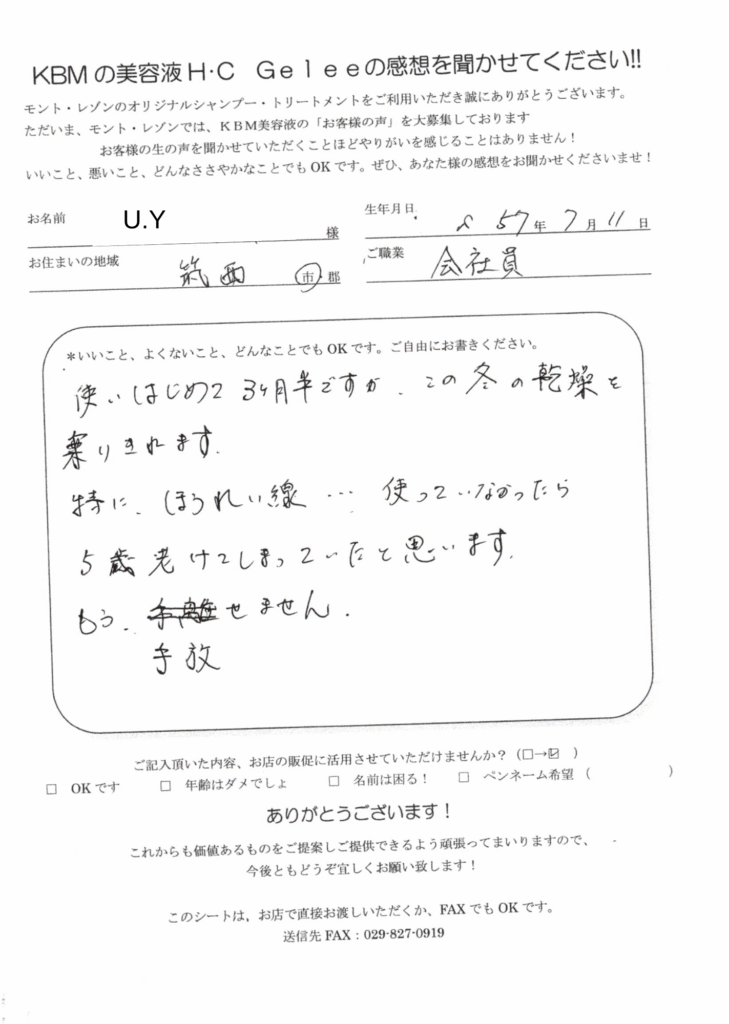 KBMの美容液H・C Geleeの感想を聞かせてください!!
モント・レゾンのオリジナルシャンプー・トリートメントをご利用いただき誠にありがとうございます。
ただいま、モント・レゾンでは、KBM美容液の「お客様の声」を大募集しております
お客様の生の声を聞かせていただくことほどやりがいを感じることはありません！
いいこと、悪いこと、どんなささやかなことでもOKです。ぜひ、あなた様の感想をお聞かせくださいませ！
お名前 U.Y 様 生年月日 S 57年 7月 11日
お住まいの地域 筑西 市 郡 ご職業 会社員
＊いいこと、よくないこと、どんなことでもOKです。ご自由にお書きください。
使いはじめて3ヶ月半ですが、この冬の乾燥を
乗りきれます。
特に、ほうれい線… 使っていなかったら
5歳老けてしまっていたと思います。
もう、手離せません。
手放
ご記入頂いた内容、お店の販促に活用させていただけませんか？（□→☑ ）
□ OKです □ 年齢はダメでしょ □ 名前は困る！ □ ペンネーム希望（ ）
ありがとうございます！
これからも価値あるものをご提案しご提供できるよう頑張ってまいりますので、
今後ともどうぞ宜しくお願い致します！
このシートは、お店で直接お渡しいただくか、FAXでもOKです。
送信先FAX：029-827-0919